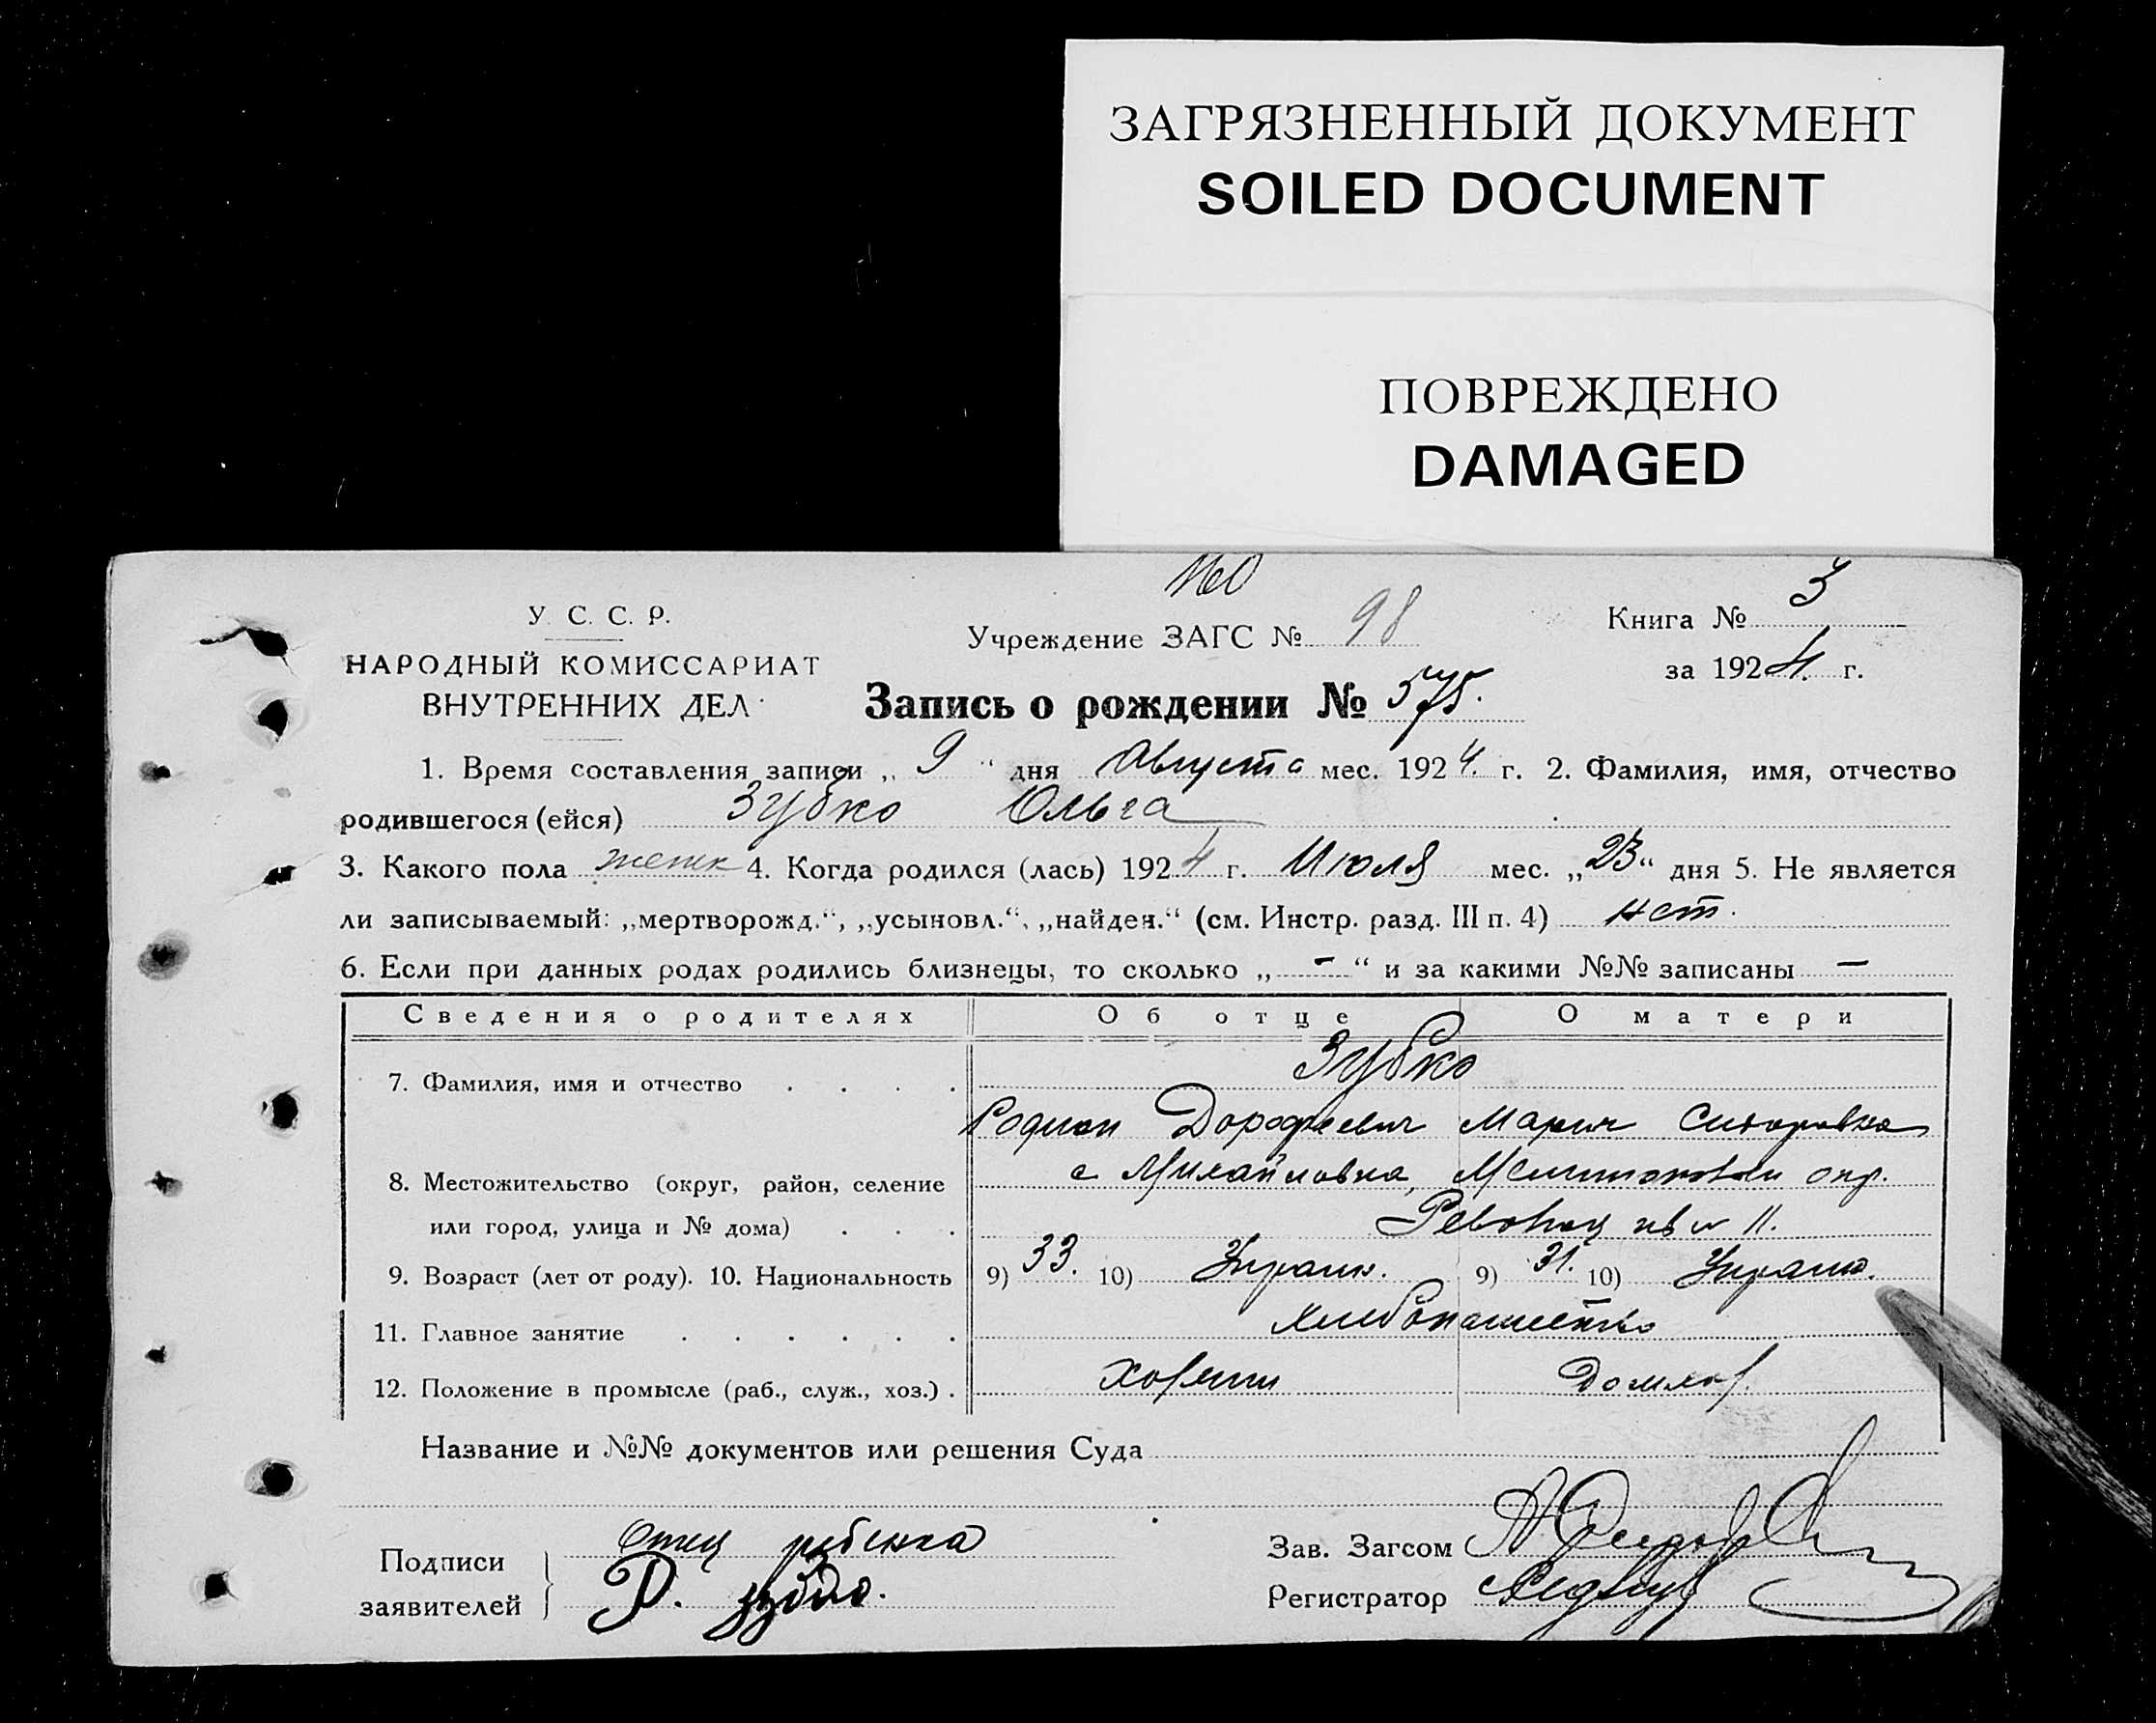 ЗАГРЯЗНЕННЫЙ ДОКУМЕНТ
SOILED DOCUMENT
ПОВРЕЖДЕНО
DAMAGED
У. С. С. Р.
НАРОДНЫЙ КОМИССАРИАТ
ВНУТРЕННИХ ДЕЛ
Учреждение ЗАГС № 98
Книга № 3
за 1924. г.
Запись о рождении № 575.
1. Время составления записи „ 9 “ дня Августа мес. 1924. г. 2. Фамилия, имя, отчество
родившегося (ейся) Зубко Ольга
3. Какого пола женск 4. Когда родился (лась) 1924 г. Июля мес. „23“ дня 5. Не является
ли записываемый: „мертворожд.“, „усыновл.“, „найден.“ (см. Инстр. разд. III п. 4) нет.
6. Если при данных родах родились близнецы, то сколько „ - “ и за какими №№ записаны —
Сведения о родителях Об отце О матери
Зубко
7. Фамилия, имя и отчество . . . .
Родион Дорофеевич Мария Сидоровна
8. Местожительство (округ, район, селение с Михайловка, окр.
или город, улица и № дома) . . . 11.
9. Возраст (лет от роду). 10. Национальность 9) 33. 10) Украин. 9) 31. 10) Украин.
11. Главное занятие . . . . . . хлебопашество
12. Положение в промысле (раб., служ., хоз.) . хозяин домхоз.
Название и №№ документов или решения Суда
Подписи
заявителей
отец ребенка
Р. Зубко.
Зав. Загсом
Регистратор